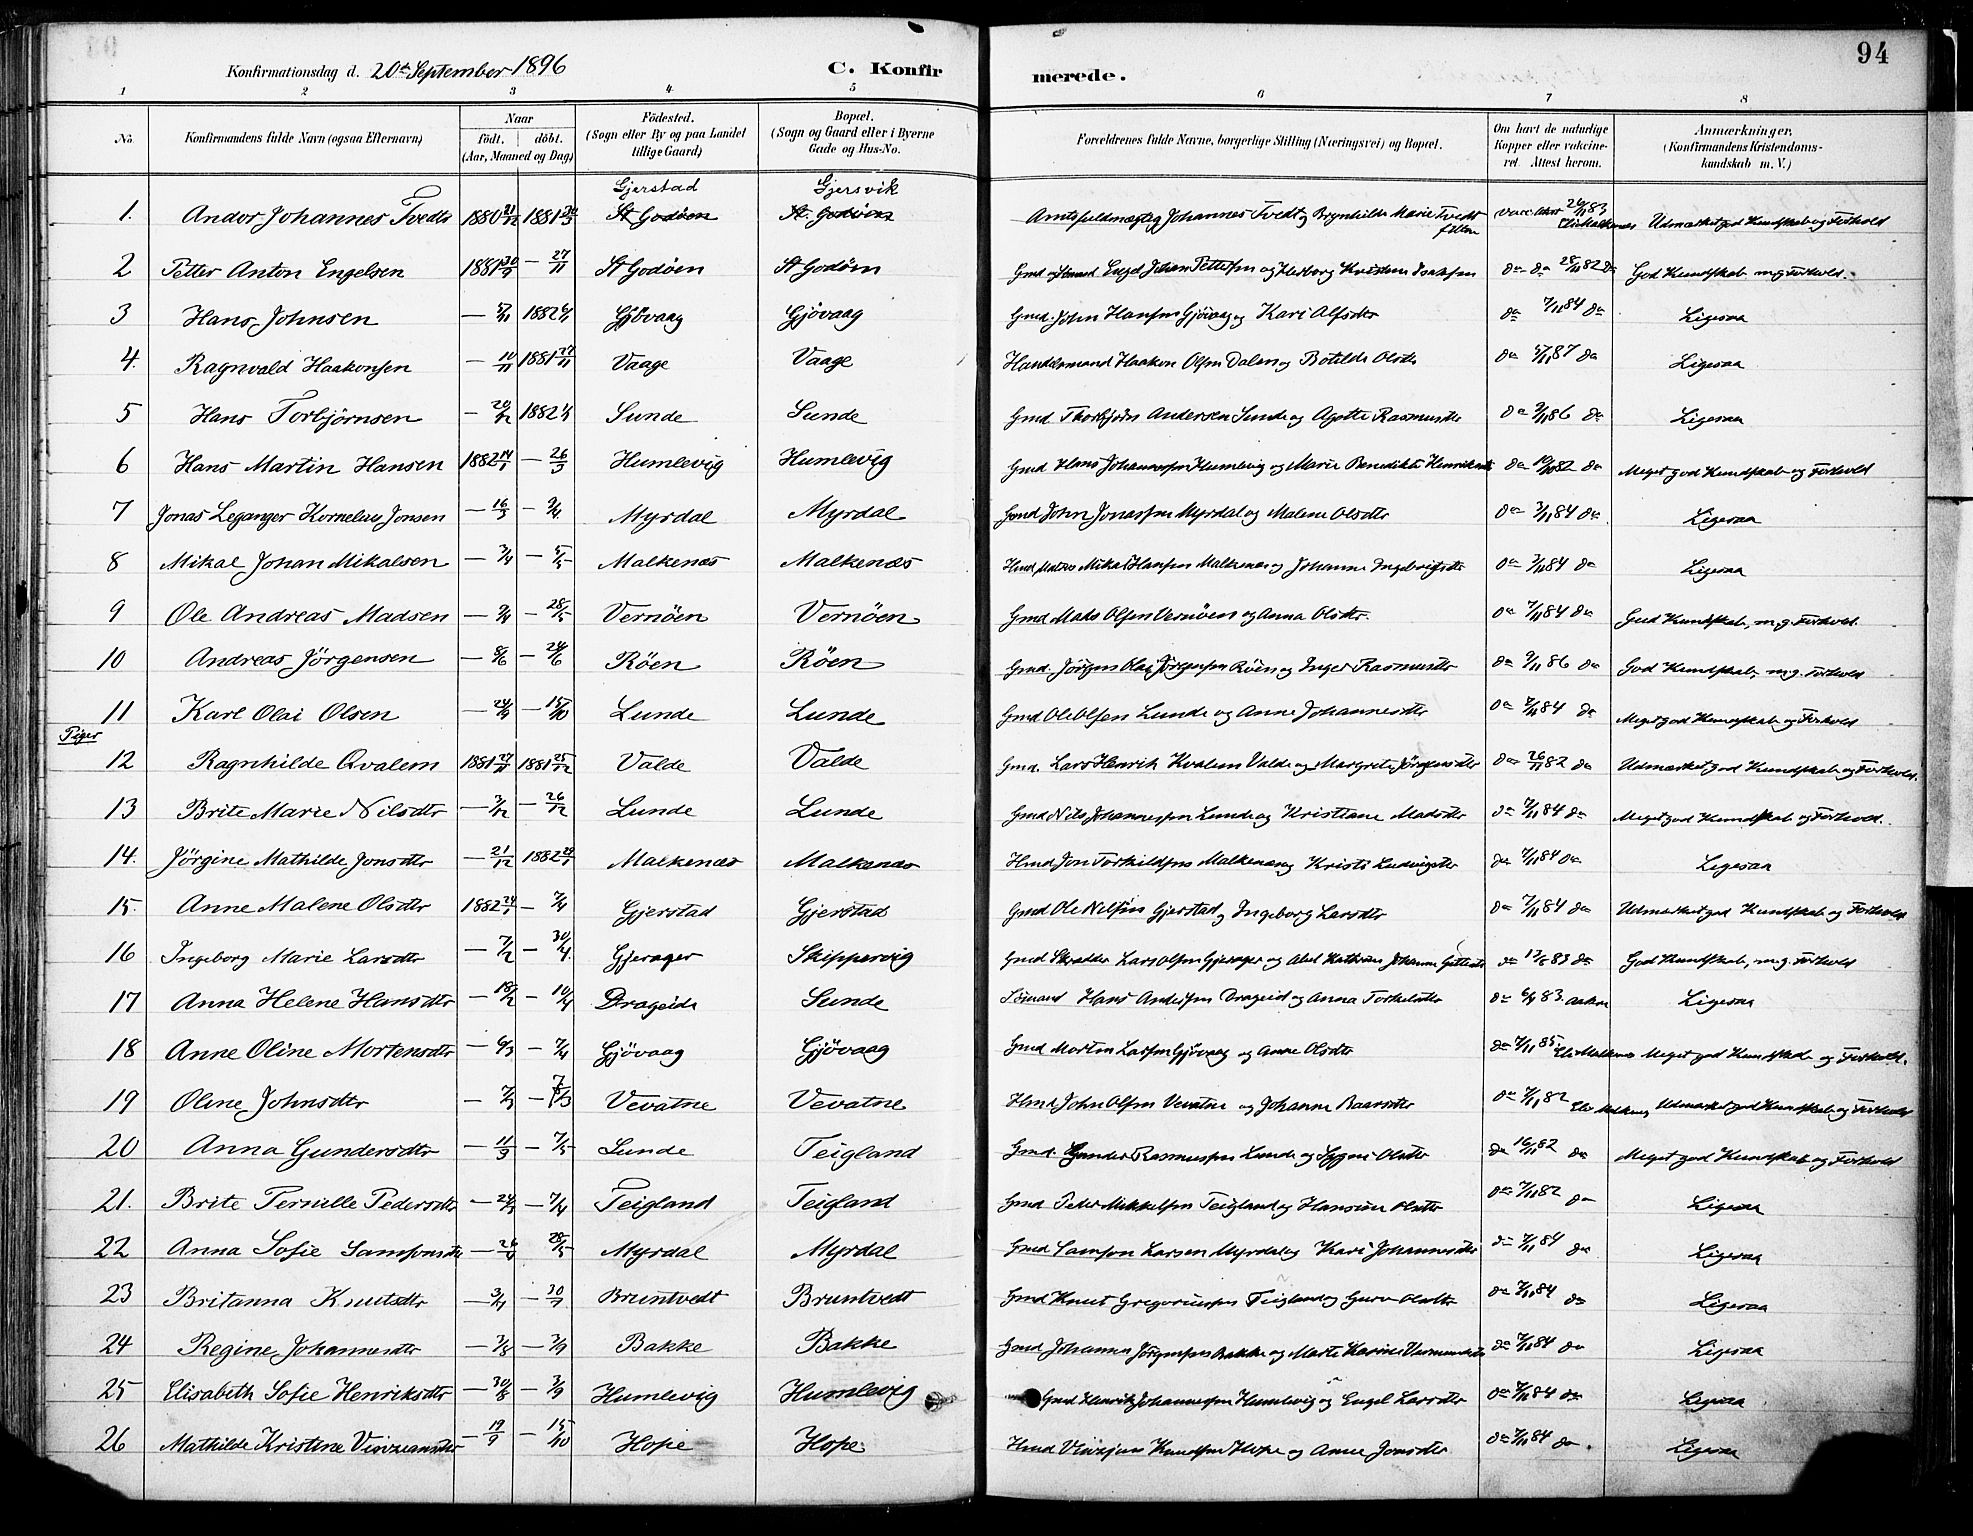 94
Konfirmationsdag d. 20de September 1896
C. Konfir
merede.
1 2 3 4 5 6 7 8
No.
Konfirmandens fulde Navn (ogsaa Efternavn)
Naar
födt. döbt.
(Aar, Maaned og Dag)
Födested.
(Sogn eller By og paa Landet
tillige Gaard)
Bopæl.
(Sogn og Gaard eller i Byerne
Gade og Hus-No.
Forældrenes fulde Navne, borgerlige Stilling (Næringsvei) og Bopæl.
Om havt de naturlige
Kopper eller vakcine-
ret. Attest herom.
Anmærkninger.
(Konfirmandens Kristendoms-
kundskab m. V.)
Gjerstad Gjersvik
1. Andor Johannes Tvedt 1880 21/12 1881 St Godöen St. Godöen Johannes Tvedt og Brynhilde Marie Tvedt 26/11 83 Udmærket god Kundskab og Forhold
2 Petter Anton Engelsen 1881 — 27/11 St Godöen St Godöen Engel Johan Pettersen og Kristine 28/11 82 da God Kundskab m.g. Forhold.
3 Hans Johnsen — 1882 Gjövaag Gjövaag Gmd. John Hansen Gjövaag og Kari Alfsdtr da 7/11 84 da Ligesaa
4. Ragnvald Haakonsen — 10/11 1881 27/11 Vaage Vaage Handelsmand Haakon Olsen Dalen og Botilde Olsdtr da 87 da Ligesaa
5 Hans Torbjörnsen — 20/12 1882 Sunde Sunde Gmd Thorbjörn Andersen Sunde og Agotte Rasmusdtr da 9/11 86 da Ligesaa
6 Hans Martin Hansen 1882 14/1 — 26/3 Humlevig Humlevig Gmd Hans Johannessen Humlevig og Marie Benedikte Henriksdtr da 82 da Meget god Kundskab og Forhold
7 Jonas Leganger Kornelius Jonsen — 16/3 — 9/4. Myrdal Myrdal Gmd John Jonassen Myrdal og Malene Olsdtr da 7/11 84 da Ligesaa
8 Mikal Johan Mikalsen — 3/4 — Malkenæs Malkenæs Mikal Hansen Malkenæs og Johanne Ingebrigtsdtr da 7/11 84 da Ligesaa
9 Ole Andreas Madsen — — 28/5 Vernöen Vernöen Gmd Mads Olsen Vernöen og Anna Olsdtr. da 7/11 84 da God Kundskab, m.g. Forhold.
10 Andreas Jörgensen — 8/6 — 24/6 Röen Röen Gmd. Jörgen Olai Jörgensen Röen og Inger Rasmusdtr da 9/11 86 da God Kundskab, m.g. Forhold
11 Karl Olai Olsen — 24/9 — 15/10 Lunde Lunde Gmd Ole Olsen Lunde og Anne Johannesdtr da 7/11 84 da Meget god Kundskab og Forhold
Piger
12 Ragnhilde Qvalem 1881 27/11 1881 25/12 Valde Valde Gmd. Lars Henrik Kvalem Valde og Margrete Jörgensdtr da 26/11 82 da Udmærket god Kundskab og Forhold.
13 Brite Marie Nilsdtr — 3/12 — 26/12 Lunde Lunde Gmd Nils Johannessen Lunde og Kristiane Madsdtr da 7/11 84 da Meget god Kundskab og Forhold.
14. Jörgine Mathilde Jonsdtr — 21/12 1882 Malkenæs Malkenæs Hmd Jon Torkildsen Malkenæs og Kristi Ludvigsdtr da 7/11 84 da Ligesaa
15. Anne Malene Olsdtr 1882 24/1 — Gjerstad Gjerstad Gmd Ole Nilsen Gjerstad og Ingeborg Larsdtr da 7/11 84 da Udmærket god Kundskab og Forhold
16 Ingeborg Marie Larsdtr — 7/2 — 30/4. Gjerager Skippervig Gmd Skrædder Lars Olsen Gjerager og Abel Kathrine Johanne da 83 da God Kundskab, m.g. Forhold
17 Anna Helene Hansdtr — 18/2 — 10/4 Drageide Sunde Sömand Hans Andersen Drageid og Anna Torkelsdtr da 83. Ligesaa
18 Anne Oline Mortensdtr — 6/3 — 7/4 Gjövaag Gjövaag Gmd Morten Larsen Gjövaag og Anne Olsdtr da 7/11 85 Meget god Kundskab og Forhold.
19 Oline Johnsdtr — 7/3 — Vevatne Vevatne Hmd John Olsen Vevatne og Johanne Baarsdtr da 7/11 82 Udmærket god Kundskab og Forhold
20 Anna Gundersdtr — 11/3 — 7/5 Lunde Teigland Gmd. Gunder Rasmussen Lunde og Sygni Olsdtr da 16/11 82 da Meget god Kundskab og Forhold
21. Brite Pernille Pedersdtr — 24/3 — 7/4 Teigland Teigland Gmd Peder Mikkelsen Teigland og Hansine Olsdtr da 7/11 82 da Ligesaa
22 Anna Sofie Samsonsdtr — 26/4 28/5 Myrdal Myrdal Gmd Samson Larsen Myrdal og Kari Johannesdtr da 7/11 84 da Ligesaa
23 Britanna Knutsdtr — — 30/7 Bruntvedt Bruntvedt Gmd Knut Gregoriussen Teigland og Guro Olsdtr da 7/11 84 da Ligesaa
24 Regine Johannesdtr — 3/8 — 3/9 Bakke Bakke Gmd Johannes Jörgensen Bakke og Marte Karine da 7/11 84 da Ligesaa
25 Elisabeth Sofie Henriksdtr — 30/8 — 3/9 Humlevig Humlevig Gmd Henrik Johannessen Humlevig og Engel Larsdtr da 7/11 84 da Ligesaa
26 Mathilde Kristine — 19/9 — 15/10 Hope Hope Hmd Knudsen Hope og Anne Jonsdtr da 7/11 84 da. Ligesaa